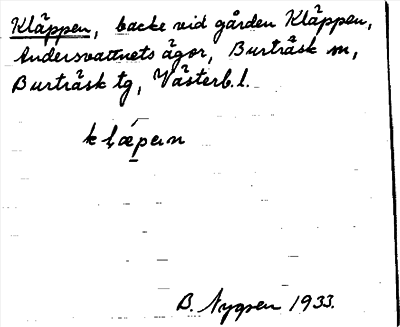 Kläppen, backe vid gården Kläppen,
Andersvattnets ägor, Burträsk sn,
Burträsk tg, Västerb. l.
B. Nygren 1933.